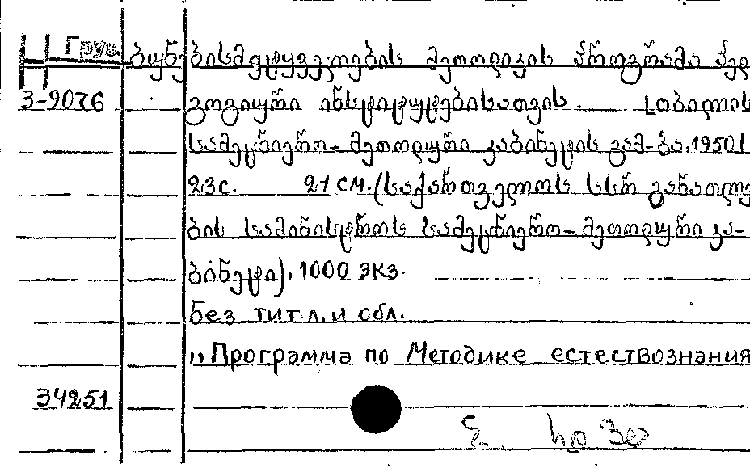 Н Груз. ბუნებისმეტყველების მეთოდიკის პროგრამა პედ
3-9076 გოგიური ინსტიტუტებისათვის. — [თბილის
სამეცნიერო-მეთოდური კაბინეტის გამ-ბა, 1950]
23 с. 21 см. (საქართველოს სსრ განათლე
ბის სამინისტროს სამეცნიერო-მეთოდური კა-
ბინეტი). 1000 экз.
Без тит. л. и обл.
„Программа по методике естествознания
34251